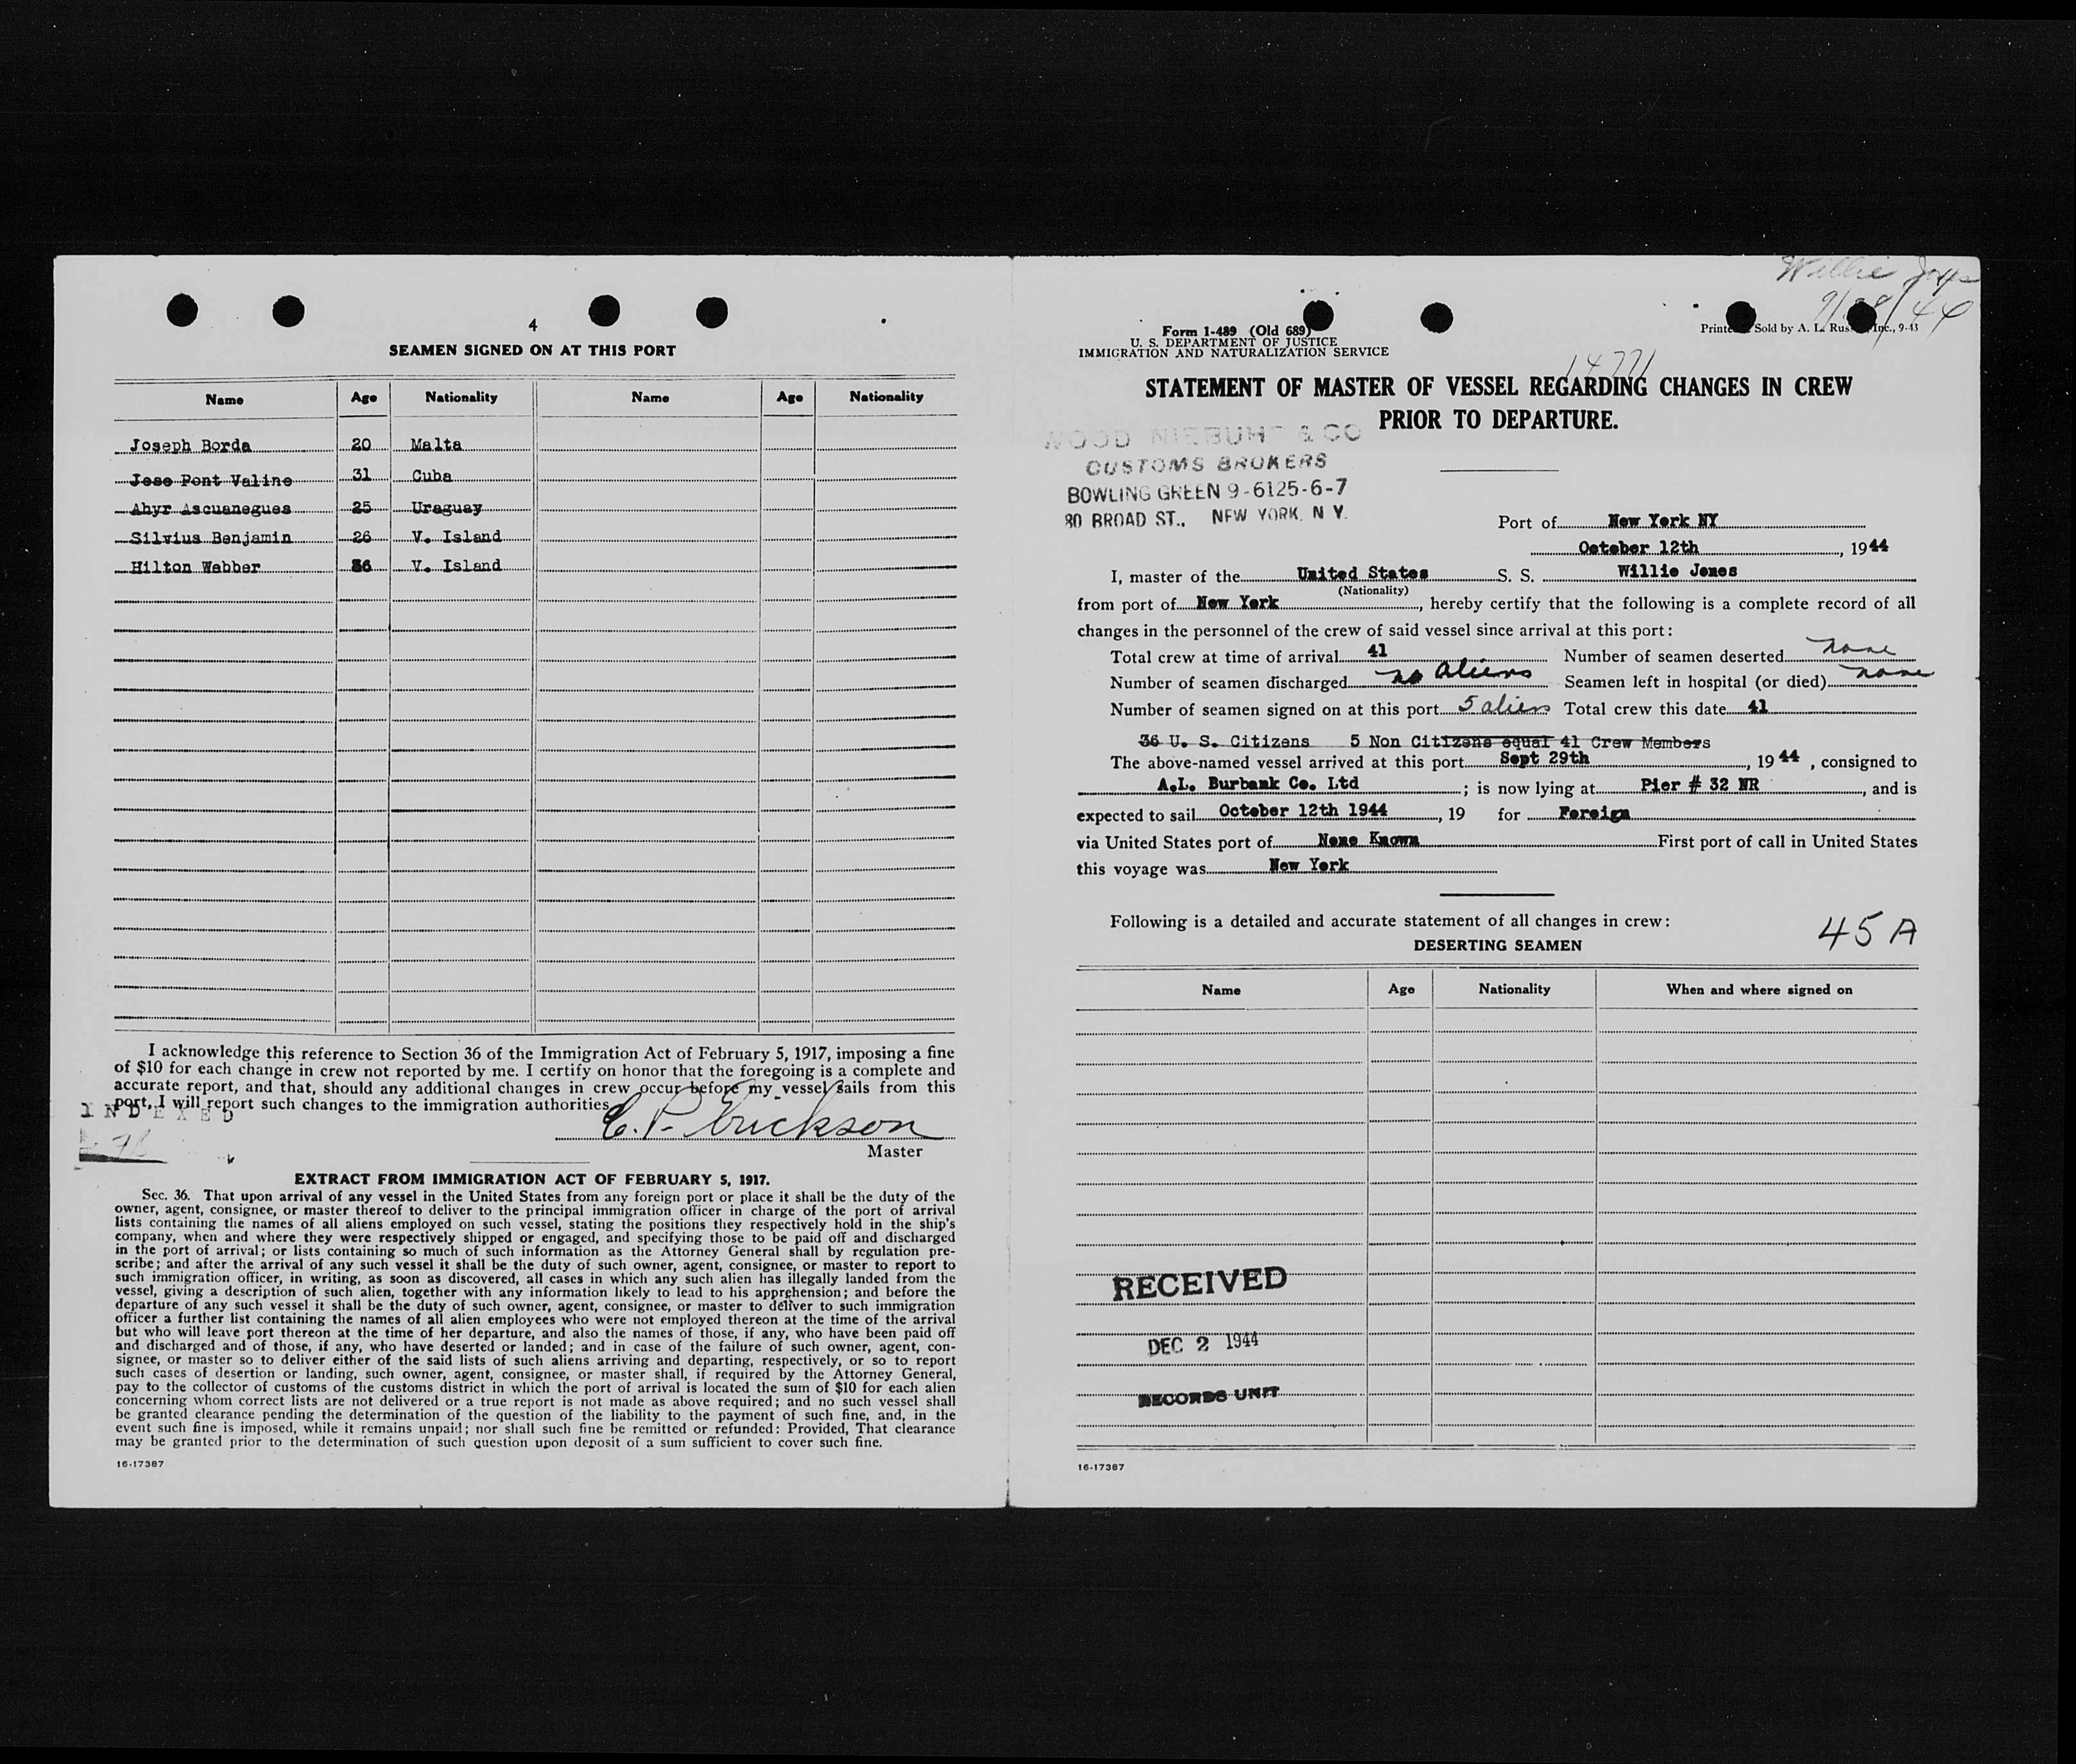 4
SEAMEN SIGNED ON AT THIS PORT
Name Age Nationality Name Age Nationality
Joseph Borda 20 Malta
Jose Pont Valine 31 Cuba
Ahyr Ascuanegues 25 Uraguay
Silvius Benjamin 26 V. Island
Hilton Webber 36 V. Island
I acknowledge this reference to Section 36 of the Immigration Act of February 5, 1917, imposing a fine
of $10 for each change in crew not reported by me. I certify on honor that the foregoing is a complete and
accurate report, and that, should any additional changes in crew occur before my vessel sails from this
port, I will report such changes to the immigration authorities.
INDEXED
C. P. Erickson
Master
EXTRACT FROM IMMIGRATION ACT OF FEBRUARY 5, 1917.
Sec. 36. That upon arrival of any vessel in the United States from any foreign port or place it shall be the duty of the
owner, agent, consignee, or master thereof to deliver to the principal immigration officer in charge of the port of arrival
lists containing the names of all aliens employed on such vessel, stating the positions they respectively hold in the ship's
company, when and where they were respectively shipped or engaged, and specifying those to be paid off and discharged
in the port of arrival; or lists containing so much of such information as the Attorney General shall by regulation pre-
scribe; and after the arrival of any such vessel it shall be the duty of such owner, agent, consignee, or master to report to
such immigration officer, in writing, as soon as discovered, all cases in which any such alien has illegally landed from the
vessel, giving a description of such alien, together with any information likely to lead to his apprehension; and before the
departure of any such vessel it shall be the duty of such owner, agent, consignee, or master to deliver to such immigration
officer a further list containing the names of all alien employees who were not employed thereon at the time of the arrival
but who will leave port thereon at the time of her departure, and also the names of those, if any, who have been paid off
and discharged and of those, if any, who have deserted or landed; and in case of the failure of such owner, agent, con-
signee, or master so to deliver either of the said lists of such aliens arriving and departing, respectively, or so to report
such cases of desertion or landing, such owner, agent, consignee, or master shall, if required by the Attorney General,
pay to the collector of customs of the customs district in which the port of arrival is located the sum of $10 for each alien
concerning whom correct lists are not delivered or a true report is not made as above required; and no such vessel shall
be granted clearance pending the determination of the question of the liability to the payment of such fine, and, in the
event such fine is imposed, while it remains unpaid; nor shall such fine be remitted or refunded: Provided, That clearance
may be granted prior to the determination of such question upon deposit of a sum sufficient to cover such fine.
16-17387
Willie Jones
9/28/44
Form 1-489 (Old 689)
U. S. DEPARTMENT OF JUSTICE
IMMIGRATION AND NATURALIZATION SERVICE
Sold by A. L. Inc., 9-43
14771
STATEMENT OF MASTER OF VESSEL REGARDING CHANGES IN CREW
PRIOR TO DEPARTURE.
WOOD NIEBUHR & CO
CUSTOMS BROKERS
BOWLING GREEN 9-6125-6-7
80 BROAD ST., NEW YORK, N Y.
Port of New York NY
October 12th, 1944
I, master of the United States S. S. Willie Jones
(Nationality)
from port of New York, hereby certify that the following is a complete record of all
changes in the personnel of the crew of said vessel since arrival at this port:
Total crew at time of arrival 41 Number of seamen deserted none
Number of seamen discharged no aliens Seamen left in hospital (or died) none
Number of seamen signed on at this port 5 aliens Total crew this date 41
36 U. S. Citizens 5 Non Citizens equal 41 Crew Members
The above-named vessel arrived at this port Sept 29th, 1944, consigned to
A.L. Burbank Co. Ltd; is now lying at Pier # 32 NR, and is
expected to sail October 12th 1944, 19 for Foreign
via United States port of None Known First port of call in United States
this voyage was New York
Following is a detailed and accurate statement of all changes in crew:
45 A
DESERTING SEAMEN
Name Age Nationality When and where signed on
RECEIVED
DEC 2 1944
RECORDS UNIT
16-17387